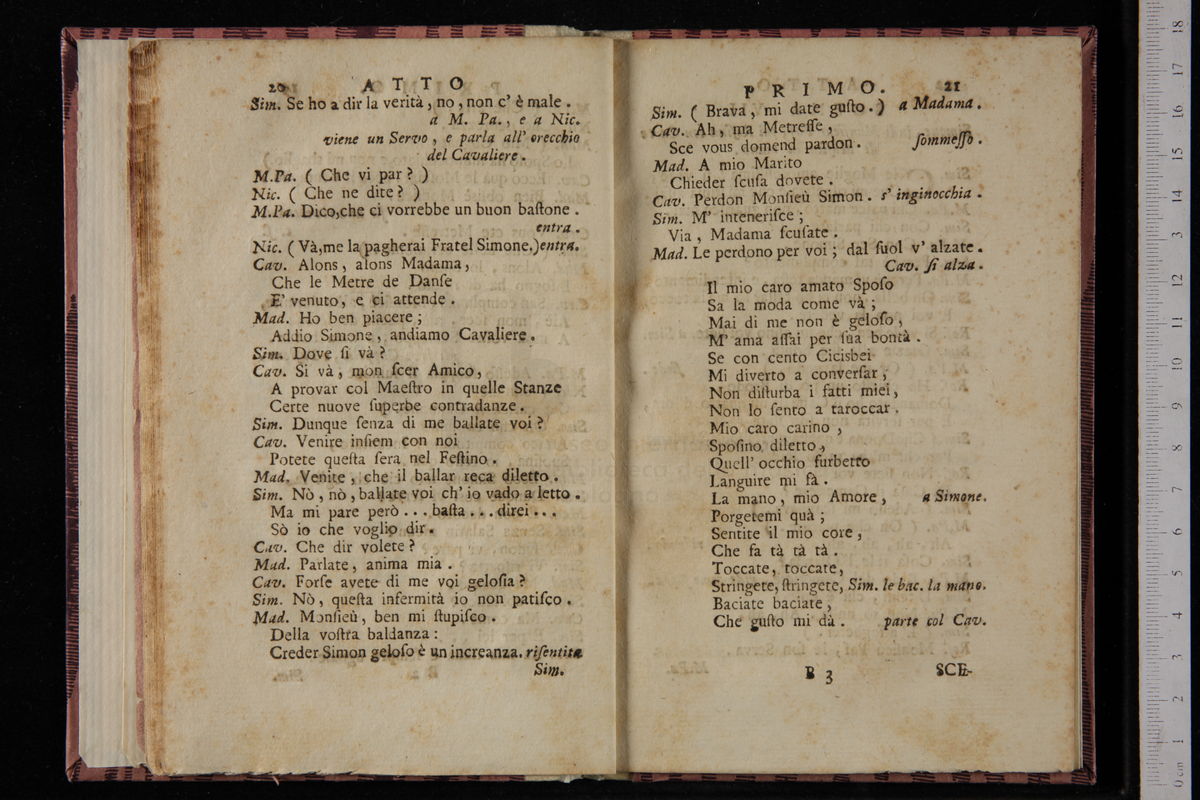 20 ATTO
Sim. Se ho a dir la verità, no, non c' è male.
a M. Pa., e a Nic.
viene un Servo, e parla all' orecchio
del Cavaliere.
M.Pa. ( Che vi par? )
Nic. ( Che ne dite? )
M.Pa. Dico,che ci vorrebbe un buon baſtone.
entra.
Nic. ( Và,me la pagherai Fratel Simone.)entra.
Cav. Alons, alons Madama,
Che le Metre de Danſe
E' venuto, e ci attende.
Mad. Ho ben piacere;
Addio Simone, andiamo Cavaliere.
Sim. Dove ſi và?
Cav. Si và, mon ſcer Amico,
A provar col Maeſtro in quelle Stanze
Certe nuove ſuperbe contradanze.
Sim. Dunque ſenza di me ballate voi?
Cav. Venire inſiem con noi
Potete queſta ſera nel Feſtino.
Mad. Venite, che il ballar reca diletto.
Sim. Nò, nò, ballate voi ch' io vado a letto.
Ma mi pare però... baſta... direi...
Sò io che voglio dir.
Cav. Che dir volete?
Mad. Parlate, anima mia.
Cav. Forſe avete di me voi geloſia?
Sim. Nò, queſta infermità io non patiſco.
Mad. Monſieù, ben mi ſtupiſco.
Della voſtra baldanza:
Creder Simon geloſo è un increanza. riſentita
Sim.
PRIMO. 21
Sim. ( Brava, mi date guſto.) a Madama.
Cav. Ah, ma Metreſſe,
Sce vous domend pardon. ſommeſſo.
Mad. A mio Marito
Chieder ſcuſa dovete.
Cav. Perdon Monſieù Simon. s' inginocchia.
Sim. M' inteneriſce;
Via, Madama ſcuſate.
Mad. Le perdono per voi; dal ſuol v' alzate.
Cav. ſi alza.
Il mio caro amato Spoſo
Sa la moda come và;
Mai di me non è geloſo,
M' ama aſſai per ſua bontà.
Se con cento Cicisbei
Mi diverto a converſar,
Non diſturba i fatti miei,
Non lo ſento a taroccar.
Mio caro carino,
Spoſino diletto,
Quell' occhio furbetto
Languire mi fà.
La mano, mio Amore, a Simone.
Porgetemi quà;
Sentite il mio core,
Che fa tà tà tà.
Toccate, toccate,
Stringete, ſtringete, Sim. le bac. la mano.
Baciate baciate,
Che guſto mi dà. parte col Cav.
B 3 SCE-
0 cm 1 2 3 4 5 6 7 8 9 10 11 12 13 14 15 16 17 18